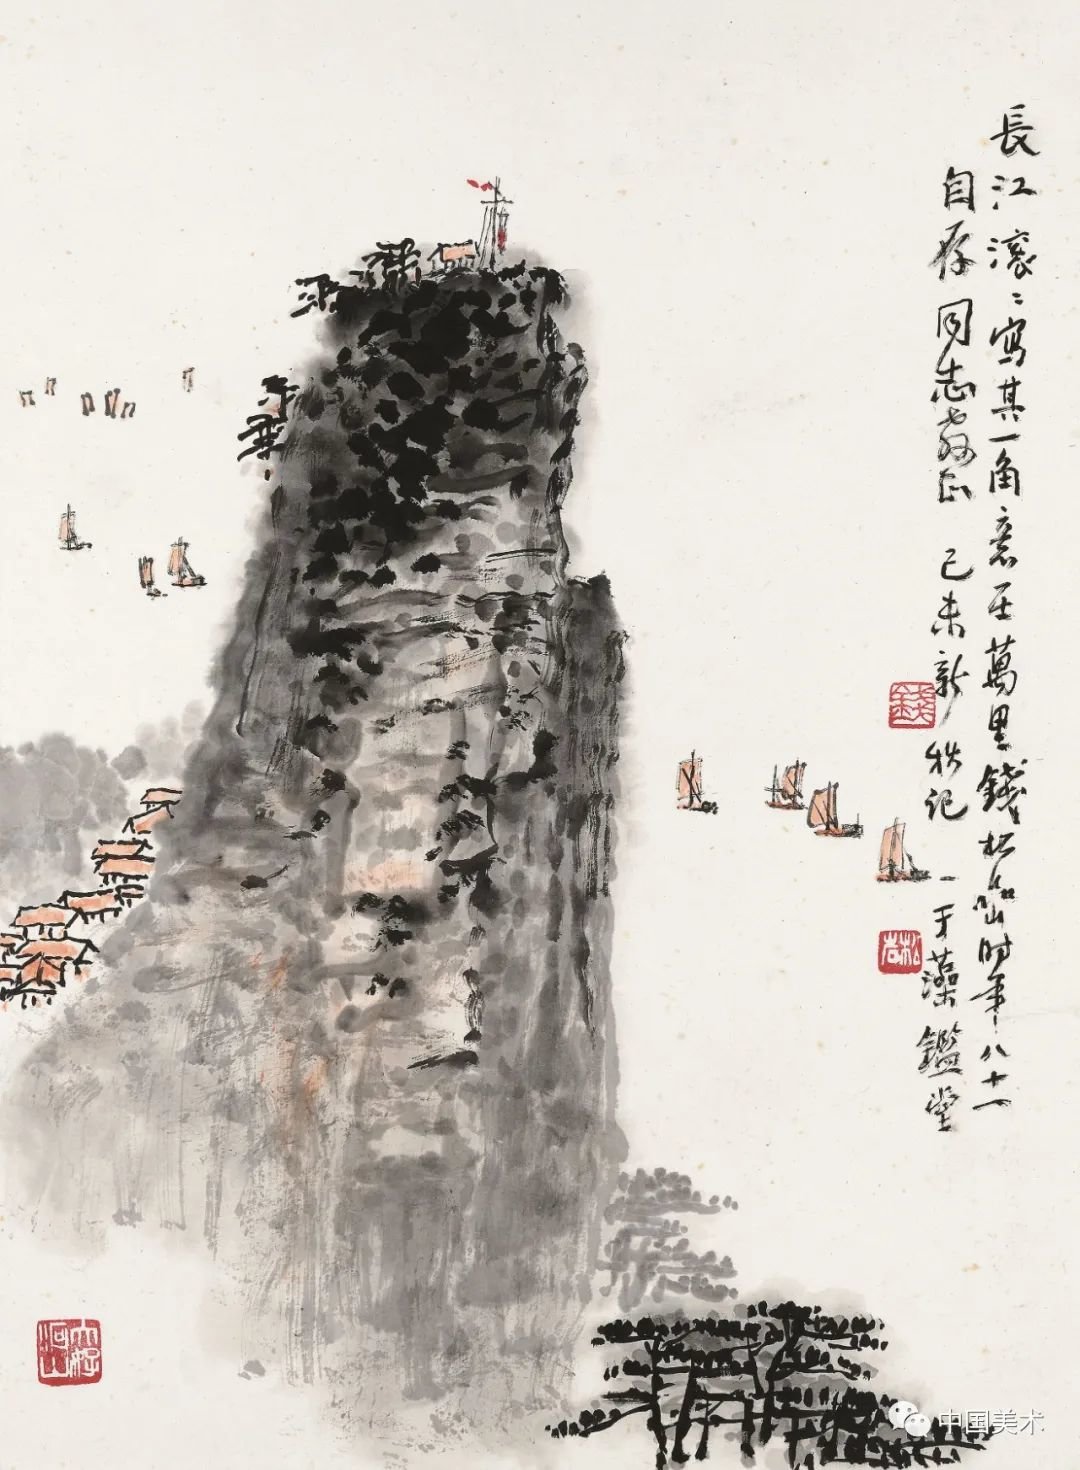 長江滚〻寫其一角意在萬里錢松嵒時年八十一
自存同志教正 己未新秋記于藻鑑堂
錢
大好河山
中国美术